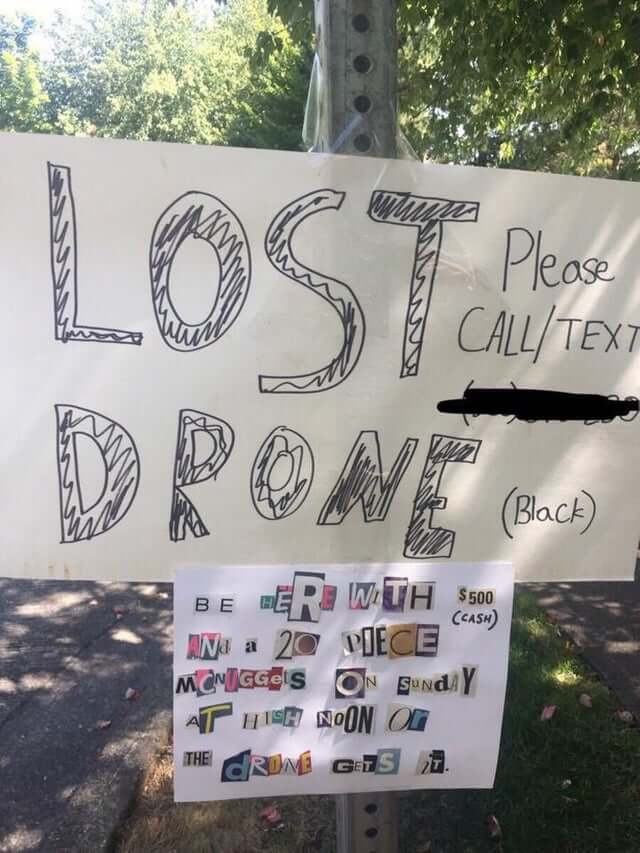 LOST
Please
CALL/TEXT
DRONE
(Black)
BE HERE WITH $500
(CASH)
ANd a 20 PIECE
MCNUGGeTS ON SUNdAY
AT HIGH NOON Or
THE dRONE GETS IT.